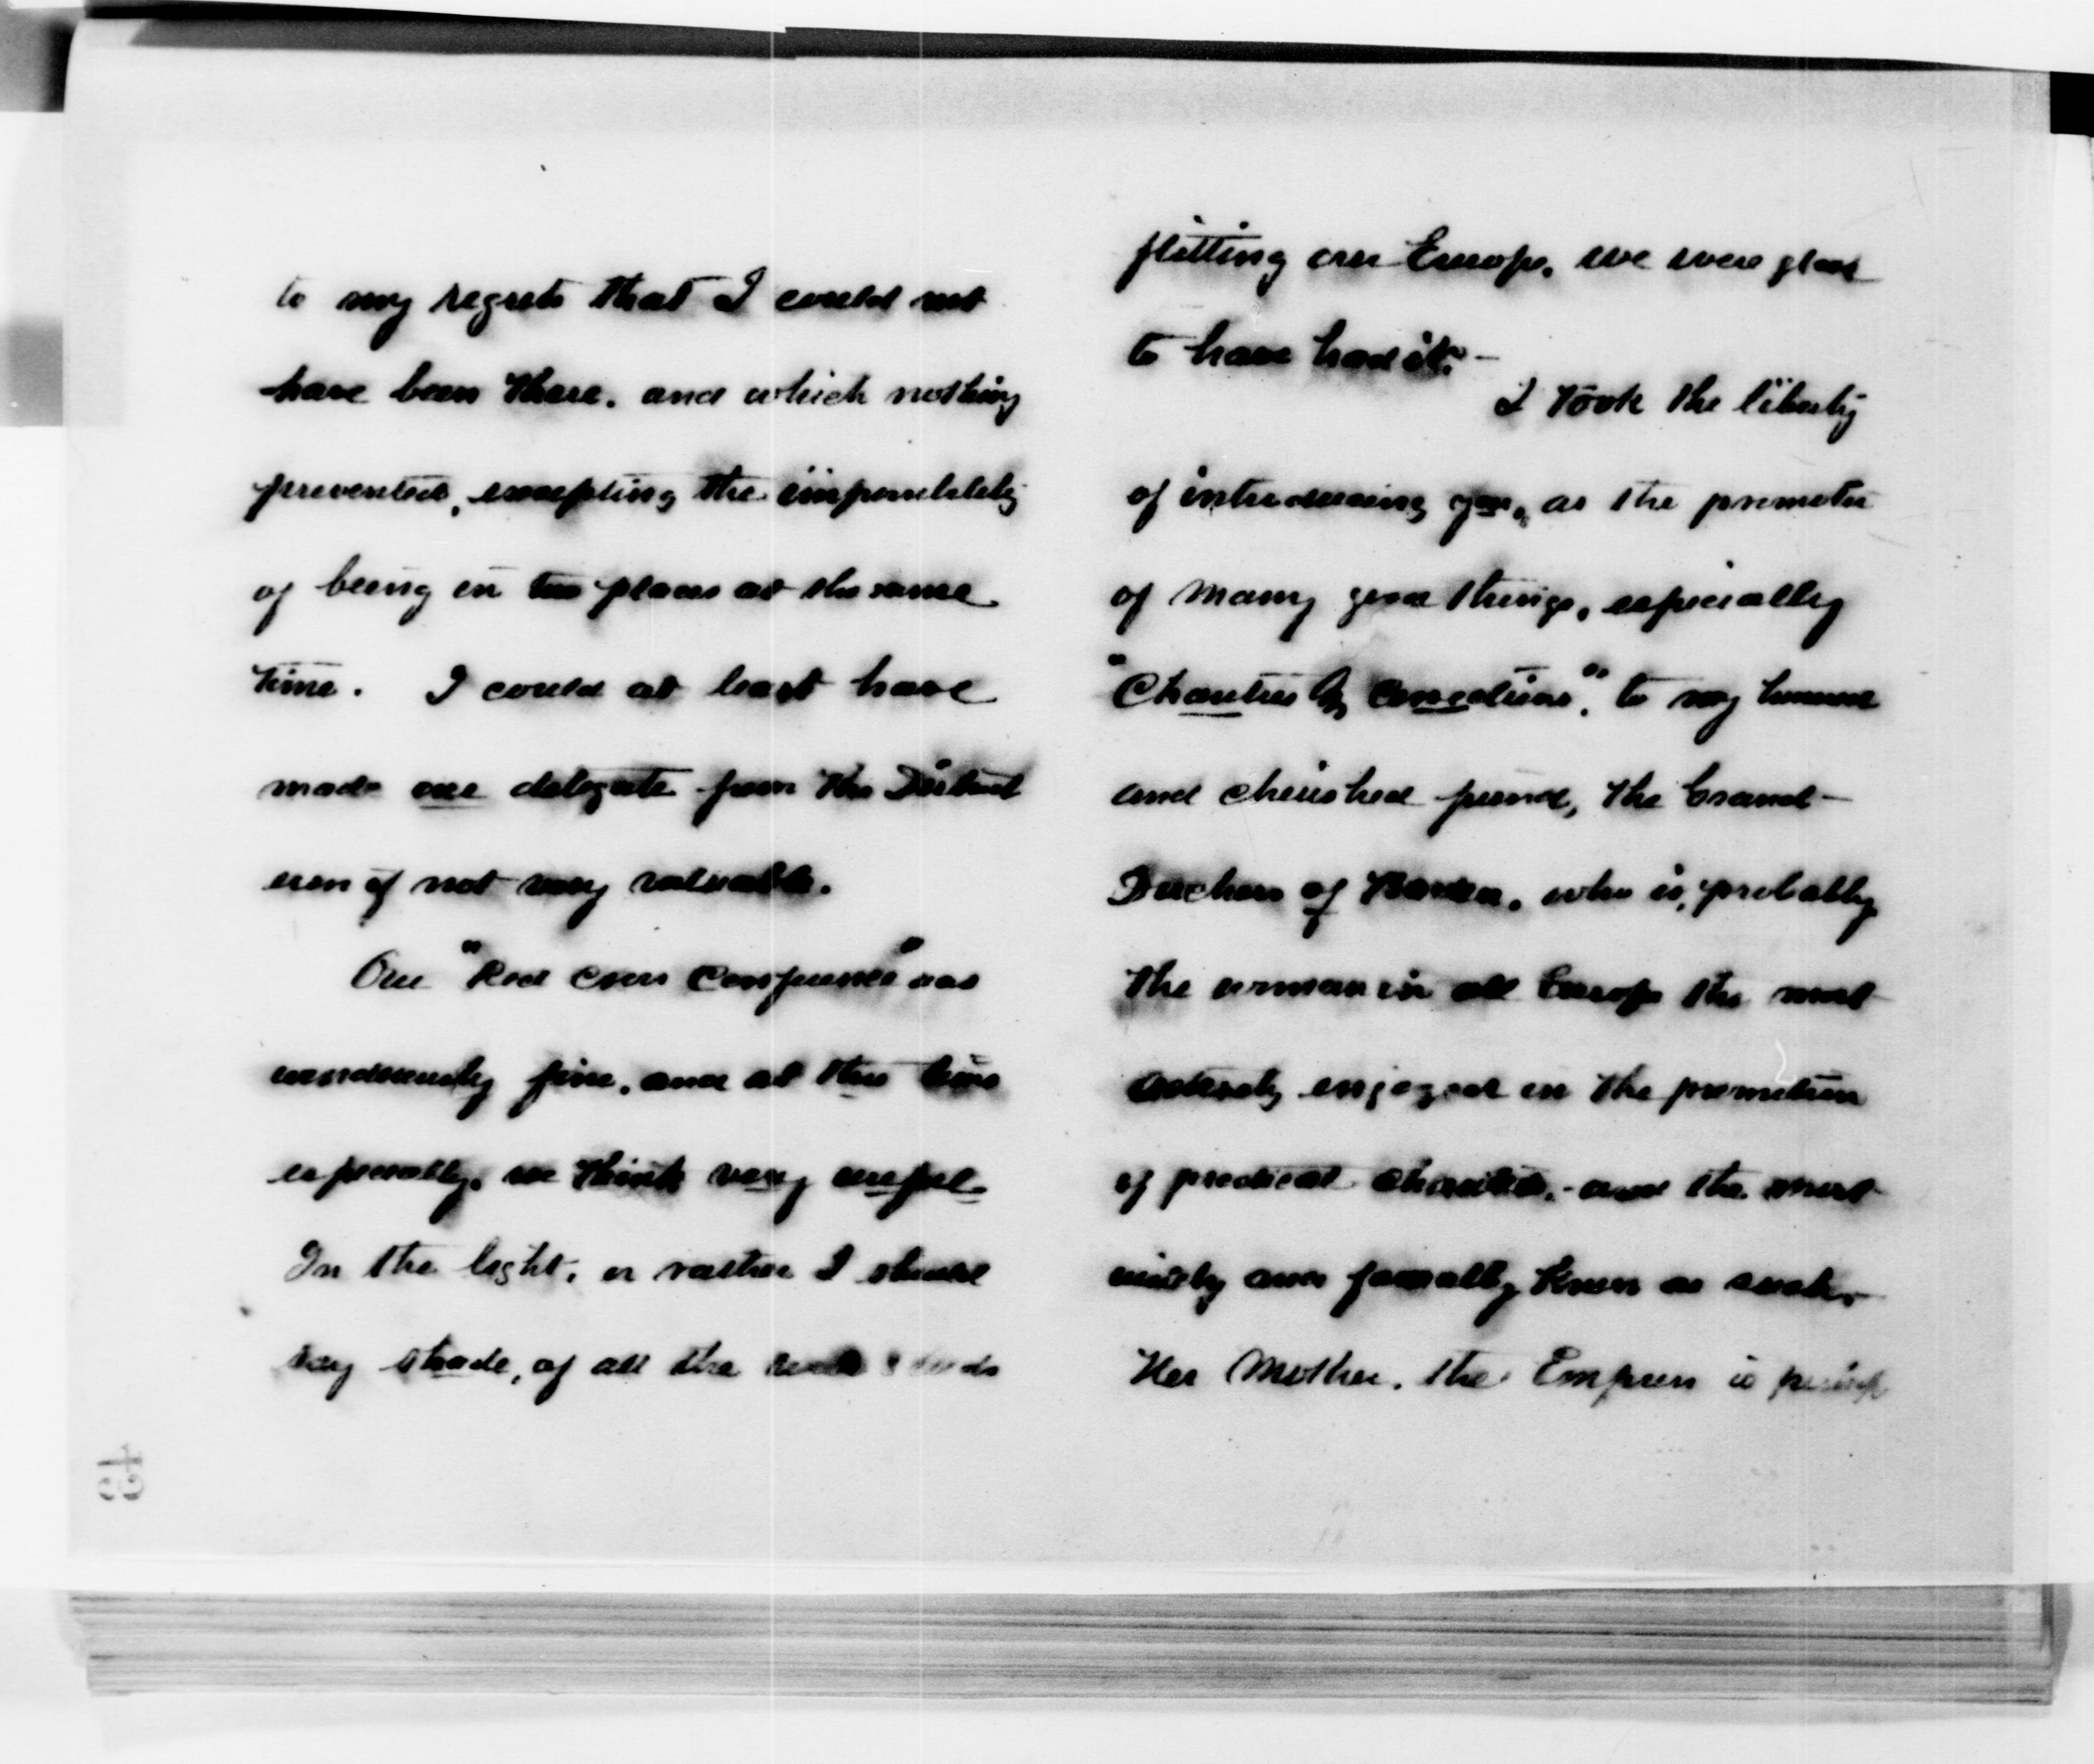 to my regrets that I could not
have been there. and which nothing
prevented, excepting the impossibility
of being in two places at the same
time. I could at least have
made one delegate from the District
even if not very valuable.
Our "Red Cross Conference" was
wondrously fine. and at this time
especially. we think very useful.
In the light, or rather I should
say shade, of all the
flitting over Europe. we were glad
to have had it. —
I took the liberty
of introducing you, as the promoter
of many good things, especially
"Charities & Corrections". to my honored
and cherished friend, the Grand-
Duchess of Baden. who is, probably
the woman in all Europe the most
actively engaged in the promotion
of practical charities, - and the most
widely and formally known as such.
Her Mother. the Empress is
43